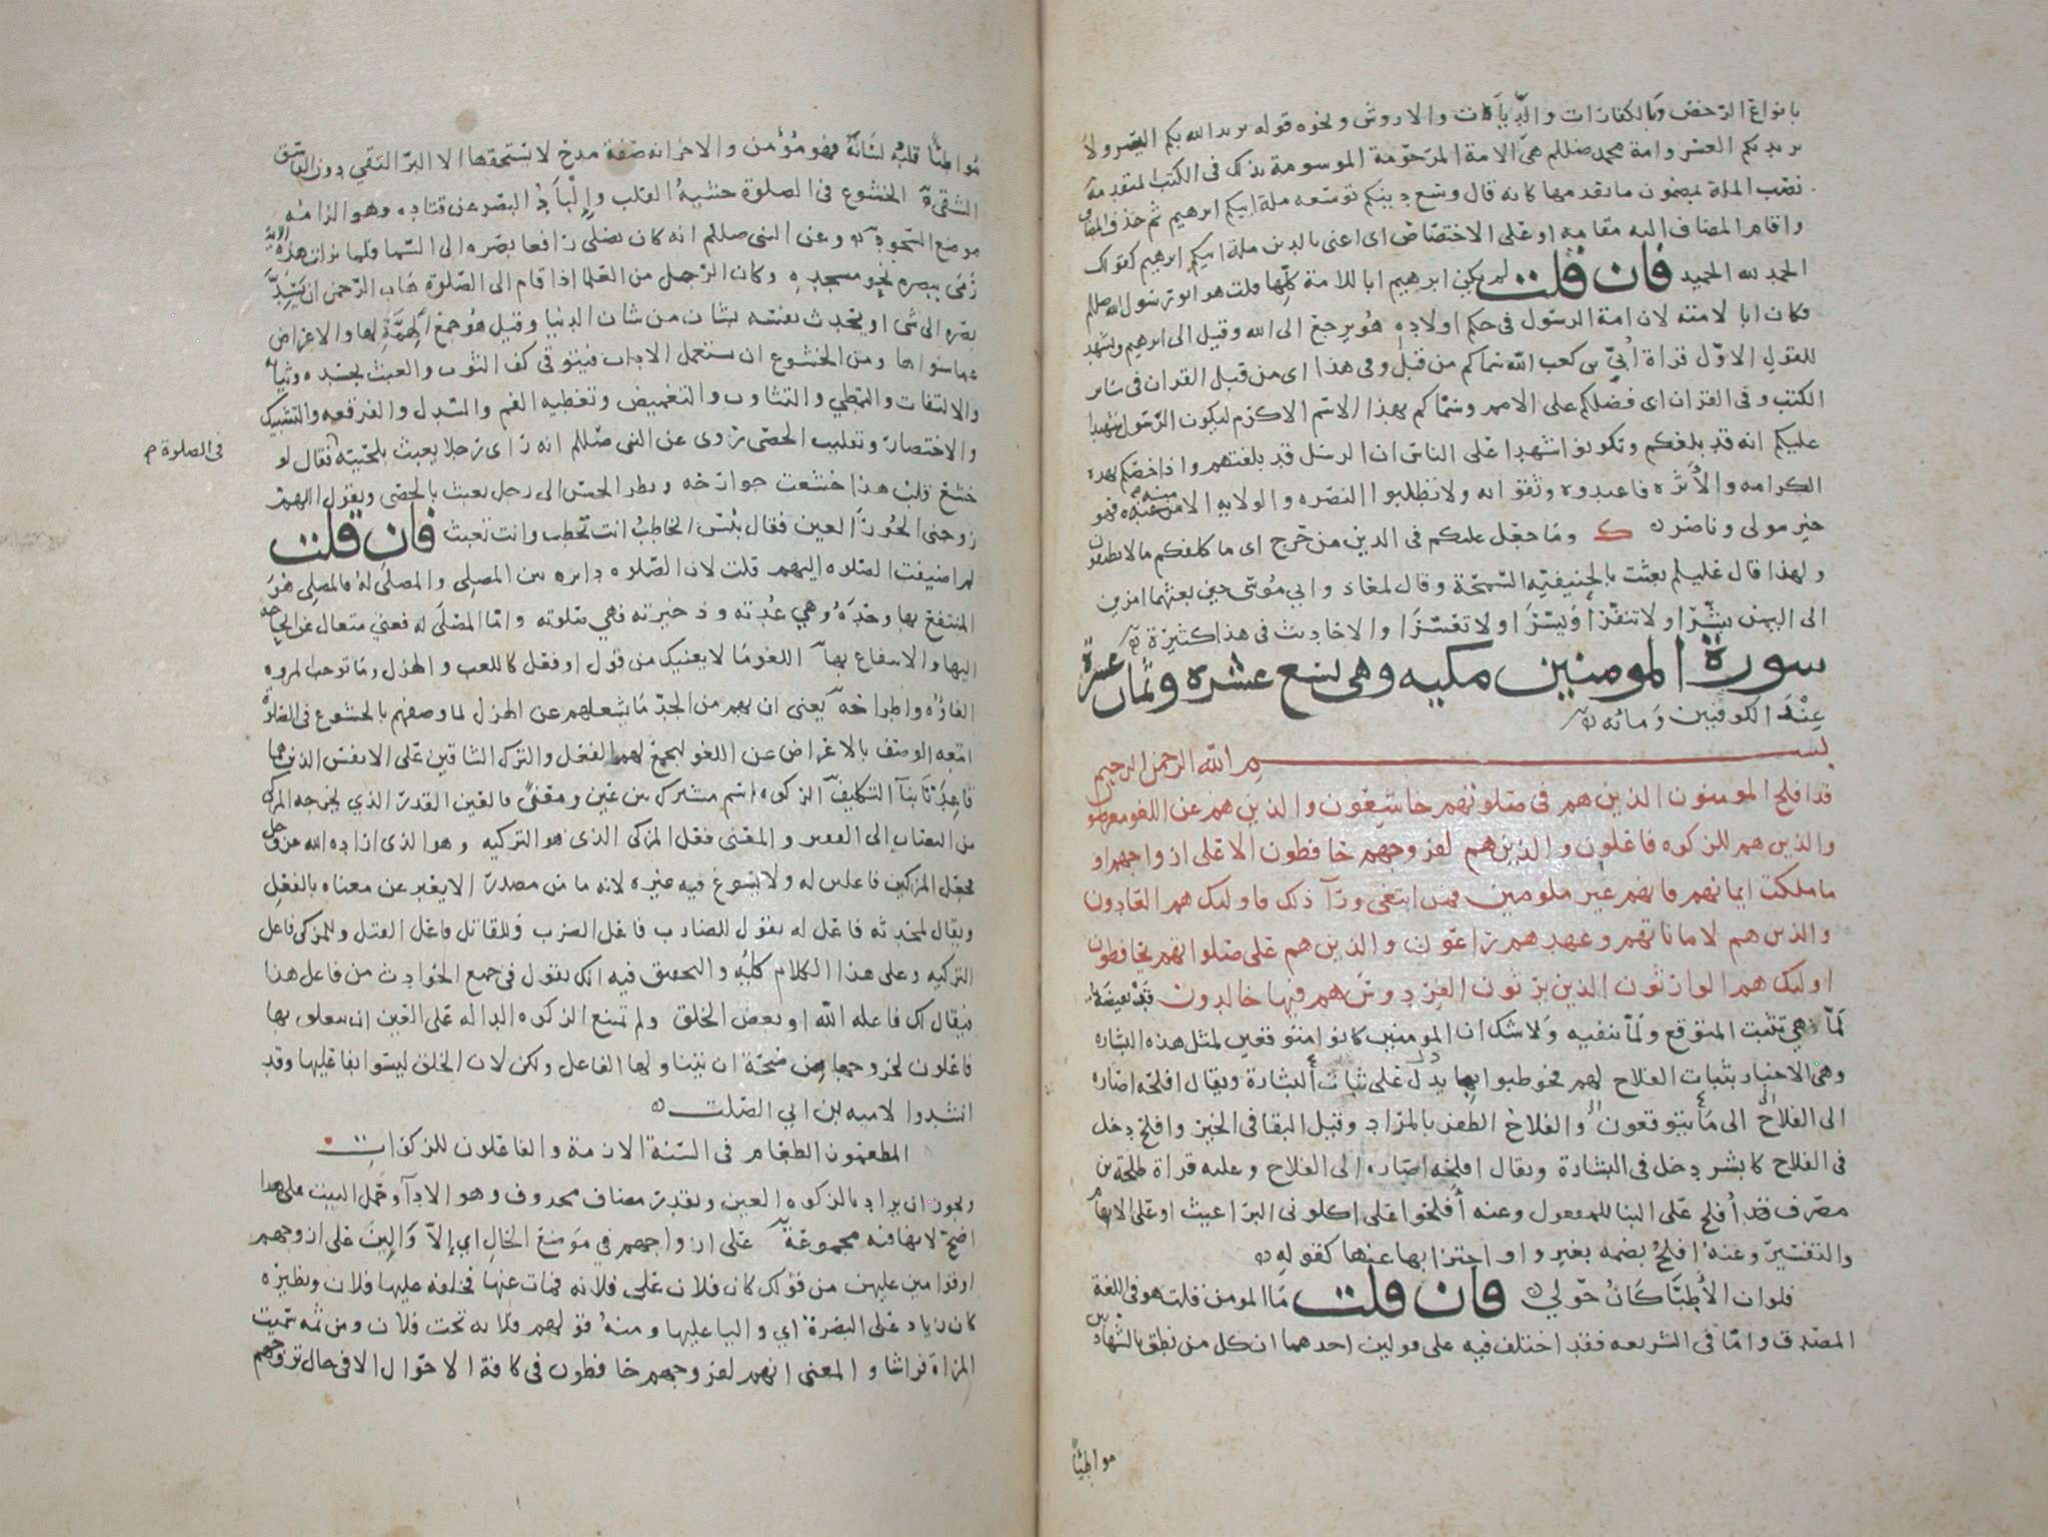 بانواع الرخص وبالكفارات والديات والاروش ونحوه قوله يريد الله بكم اليسر ولا
يريد بكم العسر وامة محمد صللم هى الامة المرحومة الموسومة بذلك فى الكتب المتقدمة
نصب الملة بمضمون ما تقدمها كانه قال وسع دينكم توسعه ملة ابيكم ابرهيم ثم حذف المضاف
واقام المضاف اليه مقامه او على الاختصاص اى اعنى بالدين ملة ابيكم ابرهيم كقولك
الحمد لله الحميد فان قلت لم يكن ابرهيم ابا للامة كلها قلت هو ابو رسول الله صللم
فكان ابا لامته لان امة الرسول فى حكم اولاده هو يرجع الى الله وقيل الى ابرهيم ويشهد
للقول الاول قراة ابي بن كعب الله سماكم من قبل وفى هذا اى من قبل القران فى سائر
الكتب وفى القران اى فضلكم على الامم وسماكم بهذا الاسم الاكرم ليكون الرسول شهيدا
عليكم انه قد بلغكم وتكونوا شهدا على الناس ان الرسل قد بلغتهم واذا خصكم بهذه
الكرامه والأثره فاعبدوه وثقوا به ولا تطلبوا النصره والولايه الا منه فهو
خير مولى وناصر وما جعل عليكم فى الدين من حرج اى ما كلفكم ما لا تطيقون
ولهذا قال عليلم بعثت بالحنيفيه السمحة وقال لمعاذ وابي موسى حين بعثهما امرين
الى اليمن بشرا ولا تنفرا ويسرا ولا تعسرا والاحاديث فى هذا كثيرة
سورة المومنين مكيه وهى تسع عشره وثمان عشرة
عند الكوفيين ومائه
بسم الله الرحمن الرحيم
قد افلح المومنون الذين هم فى صلوتهم خاشعون والذين هم عن اللغو معرضو
والذين هم للزكوه فاعلون والذين هم لفروجهم حافظون الا على ازواجهم او
ما ملكت ايمانهم فانهم غير ملومين فمن ابتغى ورآ ذلك فاوليك هم العادون
والذين هم لاماناتهم وعهدهم راعون والذين هم على صلواتهم يحافظون
اوليك هم الوارثون الذين يرثون الفردوس هم فيها خالدون قد نقيضة
لمّا هى تثبت المتوقع ولمّا تنفيه ولا شك ان المومنين كانوا متوقعين لمثل هذه البشارة
وهى الاخبار بثبات الفلاح لهم فخوطبوا بما يدل على ثبات البشارة ويقال افلحه اصاره
الى الفلاح الى ما يتوقعون والفلاح الظفر بالمراد وقيل البقا فى الخير وافلح دخل
فى الفلاح كابشر دخل فى البشارة ويقال افلحه اصاره الى الفلاح وعليه قراة طلحة بن
مصرف قد أفلح على البنا للمفعول وعنه أفلحوا على اكلونى البراغيث او على الابهام
والتفسير وعنه افلحُ بضمه بغير واو اجتزا بها عنها كقوله
فلو ان الأطبا كانُ حولي فان قلت ما المومن قلت هو فى اللغة
المصدق واما فى الشريعه فقد اختلف فيه على قولين احدهما ان كل من نطق بالشهادتين
مواطئًا
مواطئًا قلبه لسانه فهو مؤمن والاخر انه صفة مدح لا يستحقها الا البر التقي دون الفاسق
الشقى الخشوع فى الصلوة خشية القلب والباد البصر عن قتاده وهو الزامه
موضع السجود وعن النبى صللم انه كان يصلى رافعا بصره الى السما فلما نزلت هذه الآية
رمى ببصره نحو مسجده وكان الرجل من العلما اذا قام الى الصلوة هاب الرحمن ان يشد
بصره الى شى او يحدث نفسه بشان من شان الدنيا وقيل هو جمع الهمة لها والاعراض
عما سواها ومن الخشوع ان يستعمل الاداب فيتوقى كف الثوب والعبث بجسده وثيابه
والالتفات والتمطي والتثاوب والتغميض وتغطيه الفم والسدل والفرقعه والتشبيك
والاختصار وتقليب الحصى روى عن النبى صللم انه راى رجلا يعبث بلحيته فقال لو
فى الصلوة
خشع قلب هذا خشعت جوارحه ونظر الحسن الى رجل يعبث بالحصى ويقول اللهم
زوجنى الحور العين فقال بئس الخاطب انت تخطب وانت تعبث فان قلت
لم اضيفت الصلوه اليهم قلت لان الصلوه دايره بين المصلي والمصلى له فالمصلي هو
المنتفع بها وحده وهي عدته وذخيرته فهي صلوته واما المصلى له فغني متعال عن الحاجه
اليها والانتفاع بها اللغو ما لا يعنيك من قول او فعل كاللعب والهزل وما توجب المروه
الغاؤه واطراحه يعنى ان بهم من الجد ما يشغلهم عن الهزل لما وصفهم بالخشوع فى الصلوة
اتبعه الوصف بالاعراض عن اللغو ليجمع لهم الفعل والترك الشاقين على الانفس الذين هما
قاعدتا بنآ التكليف الزكوه اسم مشترك بين عين ومعنى فالعين القدر الذي يخرجه المزكى
من النصاب إلى الفقير والمعنى فعل المزكى الذى هو التزكيه وهو الذى اراده الله عز وجل
فجعل المزكين فاعلين له ولا يسوغ فيه غيره لانه ما من مصدر الا يعبر عن معناه بالفعل
ويقال لمحدثه فاعل له يقول للضارب فاعل الضرب وللقاتل فاعل القتل وللمزكى فاعل
التزكيه وعلى هذا الكلام كله والتحقيق فيه انك تقول فى جمع الحوادث من فاعل هذا
فيقال لك فاعله الله او بعض الخلق ولم تمتنع الزكوه الداله على العين ان يتعلق بها
فاعلون لخروجها من صحة ان يتناولها الفاعل ولكن لان الخلق ليسوا بفاعليها وقد
انشدوا لاميه بن ابي الصلت
المطعمون الطعام فى السنة الازمة والفاعلون للزكوات
ويجوز ان يراد بالزكوه العين ويقدر مضاف محذوف وهو الادآ وحمل البيت على هذا
اصح لانها فيه مجموعة على ازواجهم في موضع الحال اي إلا والين على ازوجهم
او قوامين عليهن من قولك كان فلان على فلانه فمات عنها فخلف عليها فلان ونظيره
كان زياد على البصرة اي واليا عليها ومنه قولهم فلانه تحت فلان ومن ثمه سميت
المراة فراشا والمعنى انهم لفروجهم حافظون فى كافة الاحوال الا فى حال تزوجهم